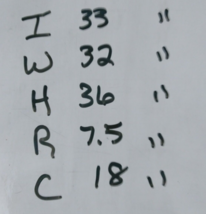 I 33 "
W 32 "
H 36 "
R 7.5 "
C 18 "